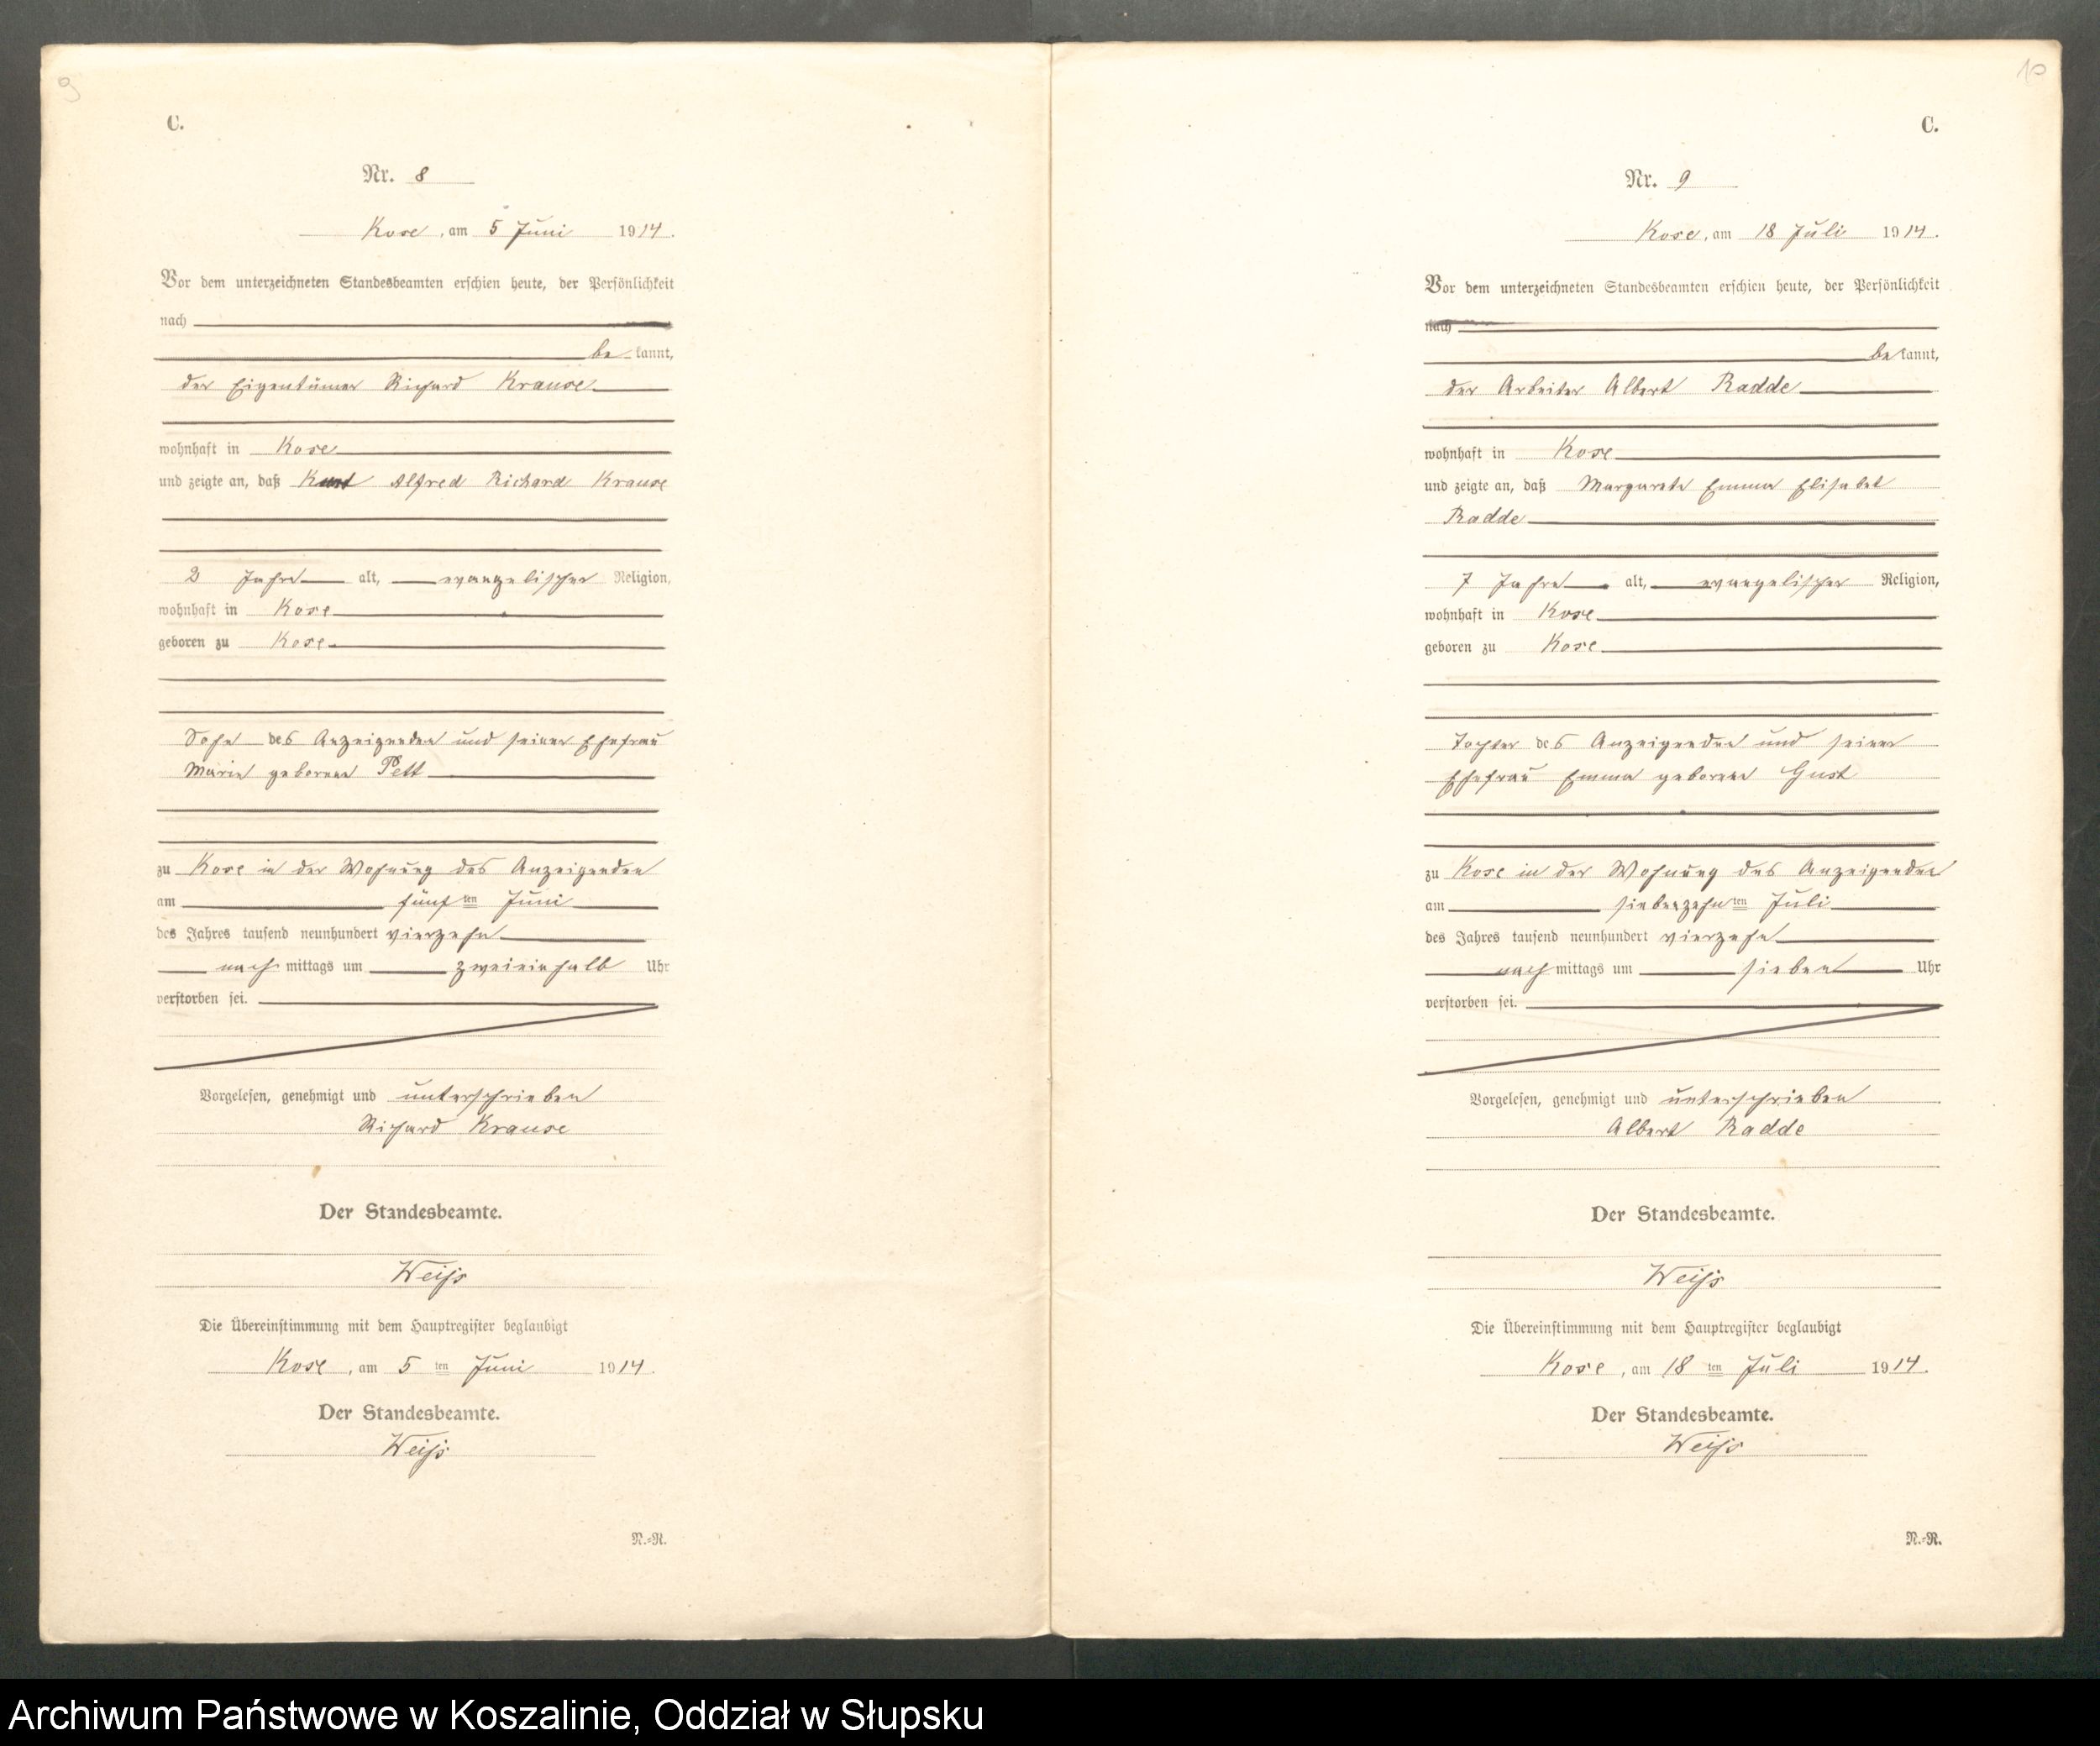 9
C.
Nr. 8
Kose, am 5 Juni 1914.
Vor dem unterzeichneten Standesbeamten erschien heute, der Persönlichkeit
nach
be kannt,
der Eigentümer Richard Krause
wohnhaft in Kose
und zeigte an, daß Kurt Alfred Richard Krause
2 Jahre alt, evangelischer Religion,
wohnhaft in Kose
geboren zu Kose
Sohn des Anzeigenden und seiner Ehefrau
Marie geborene Pett
zu Kose in der Wohnung des Anzeigenden
am fünf ten Juni
des Jahres tausend neunhundert vierzehn
nach mittags um zweieinhalb Uhr
verstorben sei.
Vorgelesen, genehmigt und unterschrieben
Richard Krause
Der Standesbeamte.
Weiß
Die Übereinstimmung mit dem Hauptregister beglaubigt
Kose, am 5 ten Juni 1914.
Der Standesbeamte.
Weiß
N.-R.
10
C.
Nr. 9
Kose, am 18 Juli 1914.
Vor dem unterzeichneten Standesbeamten erschien heute, der Persönlichkeit
nach
be kannt,
der Arbeiter Albert Radde
wohnhaft in Kose
und zeigte an, daß Margarete Emma Elisabet
Radde
7 Jahre alt, evangelischer Religion,
wohnhaft in Kose
geboren zu Kose
Tochter des Anzeigenden und seiner
Ehefrau Emma geborene Gust
zu Kose in der Wohnung des Anzeigenden
am siebenzehn ten Juli
des Jahres tausend neunhundert vierzehn
nach mittags um sieben Uhr
verstorben sei.
Vorgelesen, genehmigt und unterschrieben
Albert Radde
Der Standesbeamte.
Weiß
Die Übereinstimmung mit dem Hauptregister beglaubigt
Kose, am 18 ten Juli 1914.
Der Standesbeamte.
Weiß
N.-R.
Archiwum Państwowe w Koszalinie, Oddział w Słupsku